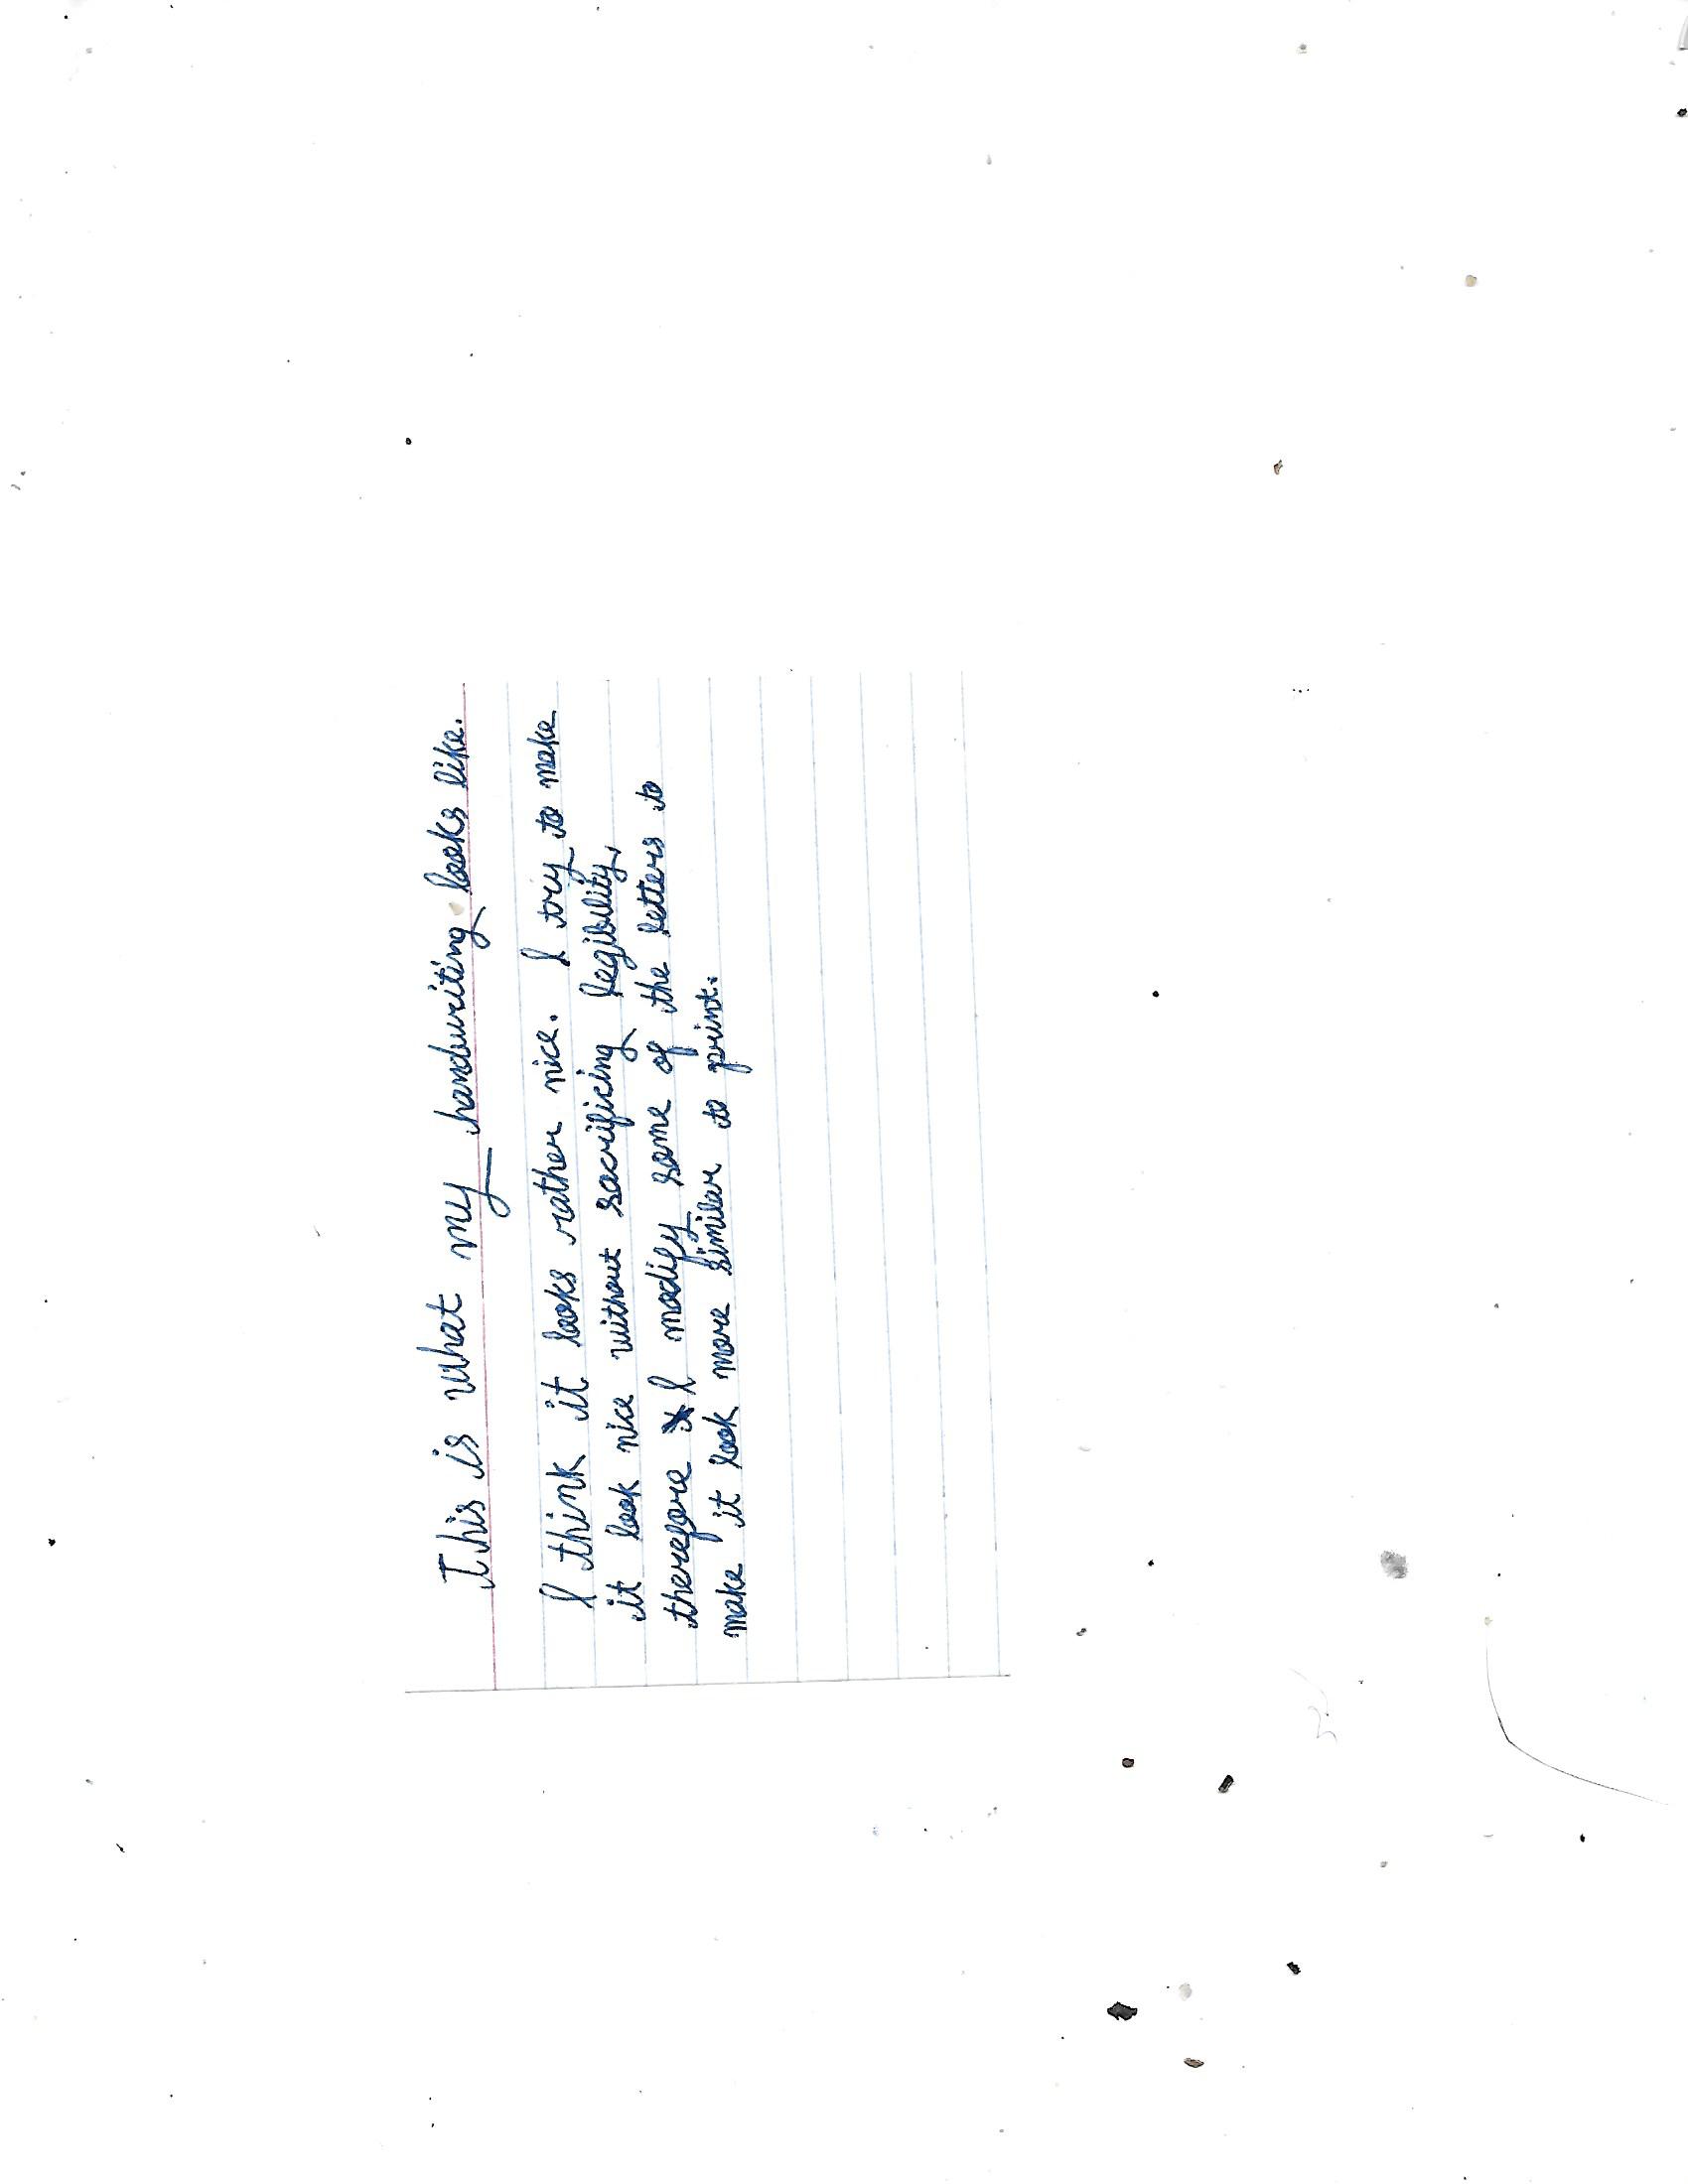 This is what my handwriting looks like.
I think it looks rather nice. I try to make
it look nice without sacrificing legibility,
therefore I modify some of the letters to
make it look more similar to print.